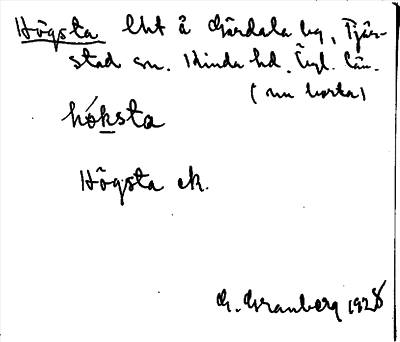 Högsta lht å Gärdala hg, Tjär-
stad sn. Kinda hd. Ögl. län.
(nu borta)
hóksta
Högsta ek.
G. Granberg 1928